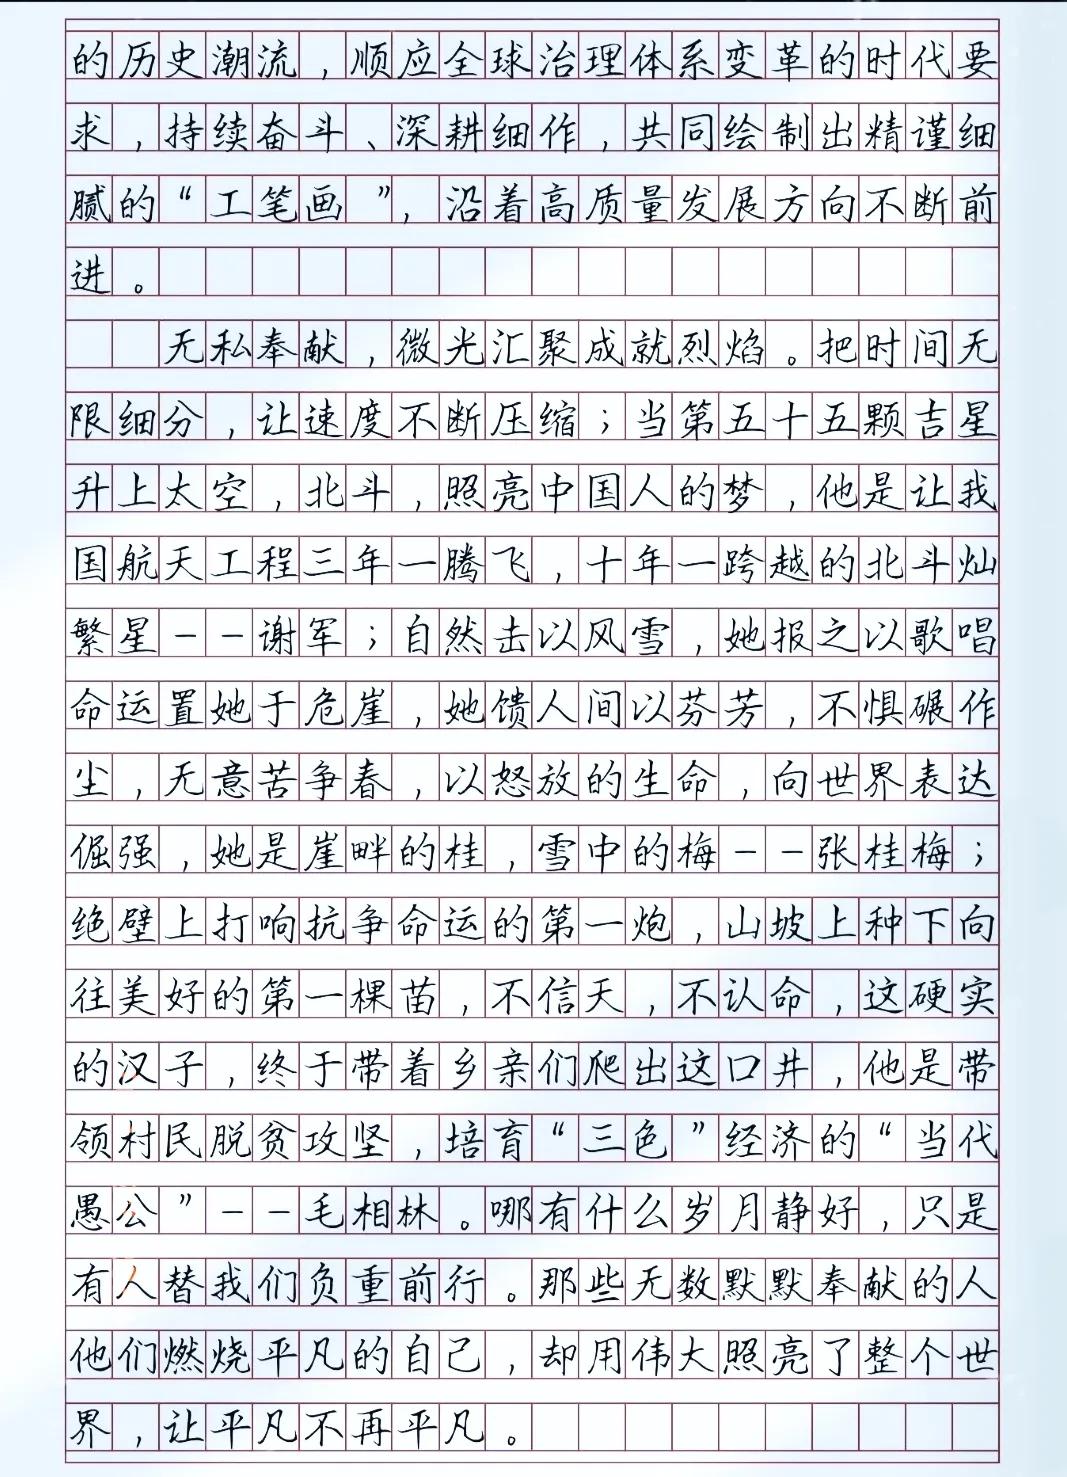 的历史潮流，顺应全球治理体系变革的时代要
求，持续奋斗、深耕细作，共同绘制出精谨细
腻的“工笔画”，沿着高质量发展方向不断前
进。
无私奉献，微光汇聚成就烈焰。把时间无
限细分，让速度不断压缩；当第五十五颗吉星
升上太空，北斗，照亮中国人的梦，他是让我
国航天工程三年一腾飞，十年一跨越的北斗灿
繁星——谢军；自然击以风雪，她报之以歌唱
命运置她于危崖，她馈人间以芬芳，不惧碾作
尘，无意苦争春，以怒放的生命，向世界表达
倔强，她是崖畔的桂，雪中的梅——张桂梅；
绝壁上打响抗争命运的第一炮，山坡上种下向
往美好的第一棵苗，不信天，不认命，这硬实
的汉子，终于带着乡亲们爬出这口井，他是带
领村民脱贫攻坚，培育“三色”经济的“当代
愚公”——毛相林。哪有什么岁月静好，只是
有人替我们负重前行。那些无数默默奉献的人
他们燃烧平凡的自己，却用伟大照亮了整个世
界，让平凡不再平凡。